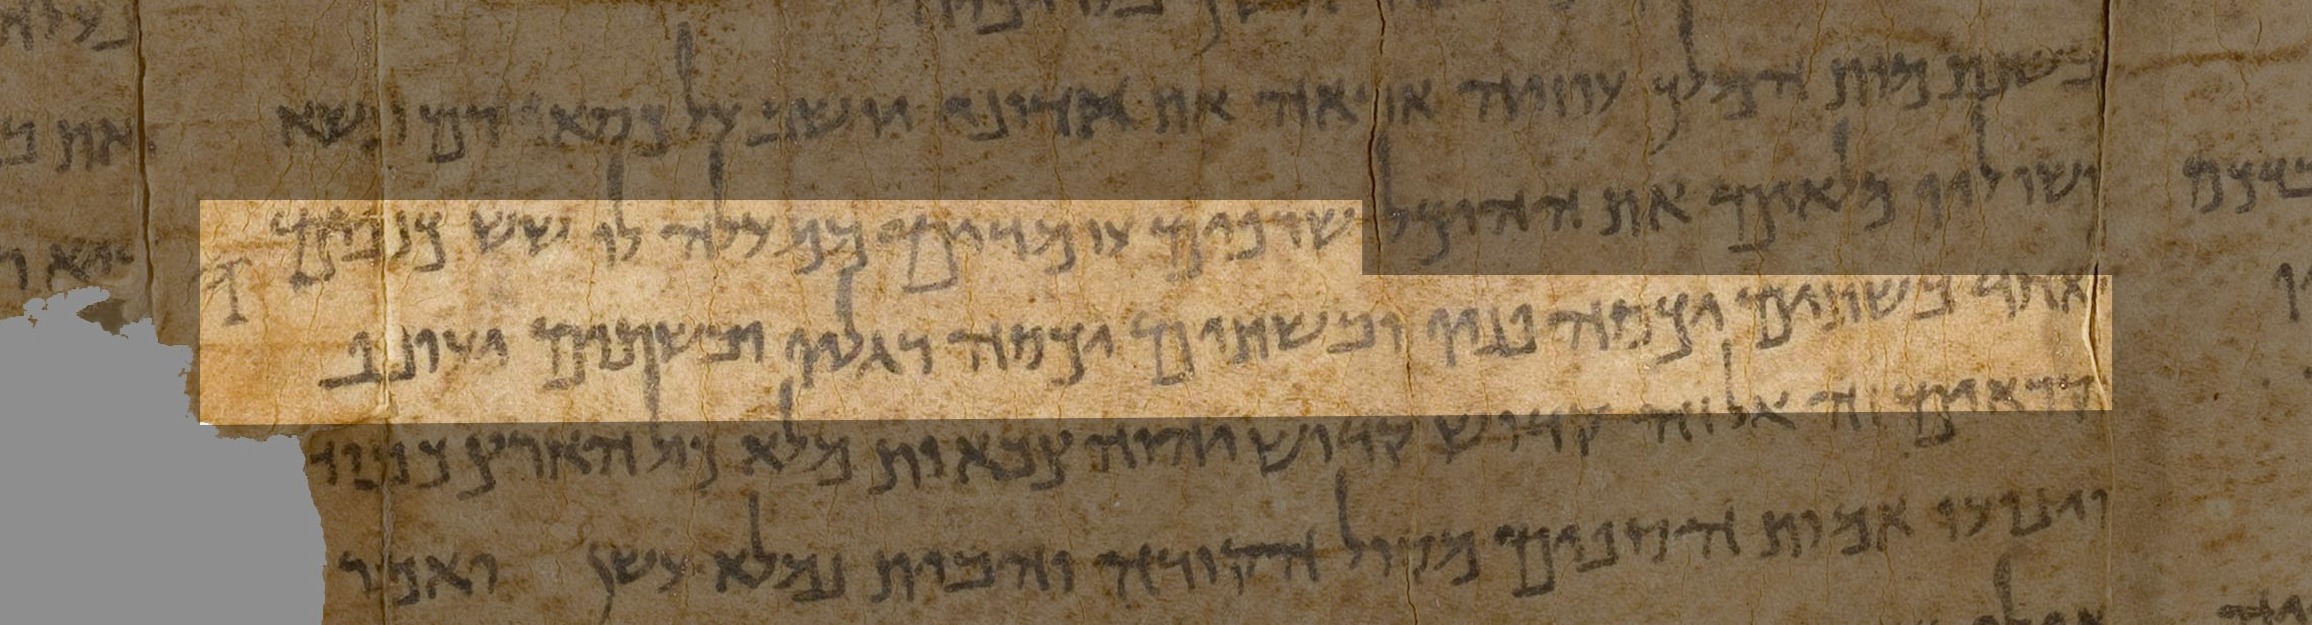 בשנת מות המלך עוזיה אראה את אדוני יושב על כסא רם ונשא
ושוליו מלאים את ההיכל שרפים עומדים ממעלה לו שש כנפים
אחד בשתים יכסה פניו ובשתים יכסה רגליו ובשתים יעופף
קראים זה אל זה קדוש קדוש יהוה צבאות מלא כול הארץ כבודו
וינועו אמות הספים מקול הקורה והבית נמלא עשן ואמר